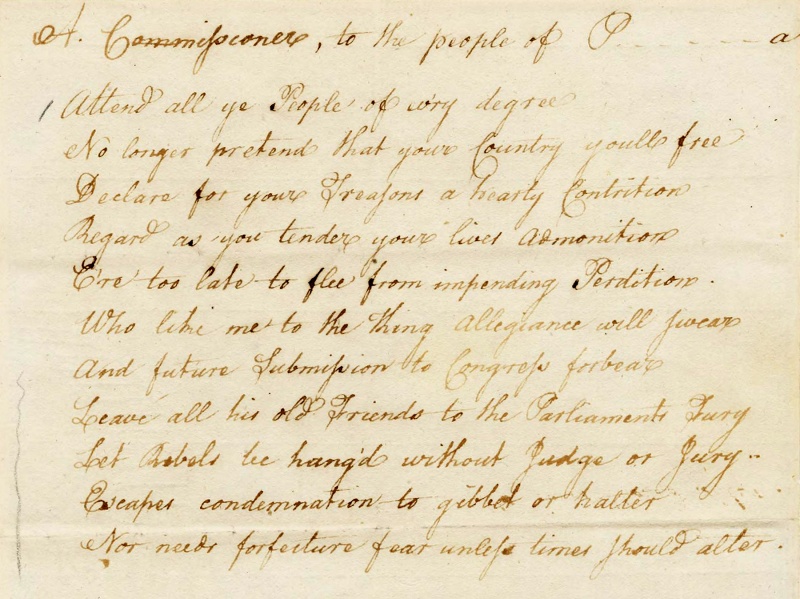 A. Commissioner, to the people of P - - - - - - - a
Attend all ye People of ev'ry degree
No longer pretend that your Country youll free
Declare for your Treasons a hearty Contrition
Regard as you tender your lives admonition
E're too late to flee from impending Perdition.
Who like me to the King Allegiance will swear
And future Submission to Congress forbear
Leave all his old Friends to the Parliaments Fury
Let Rebels be hang'd without Judge or Jury -
Escapes condemnation to gibbet or halter
Nor needs forfeiture fear unless times should alter.